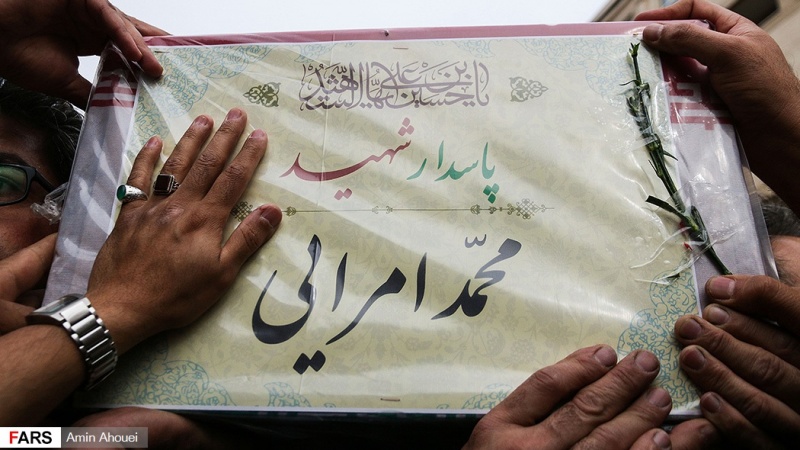 یا حسین بن علی ایها الشهید
پاسدار شهید
محمّد امرایی
FARS Amin Ahouei